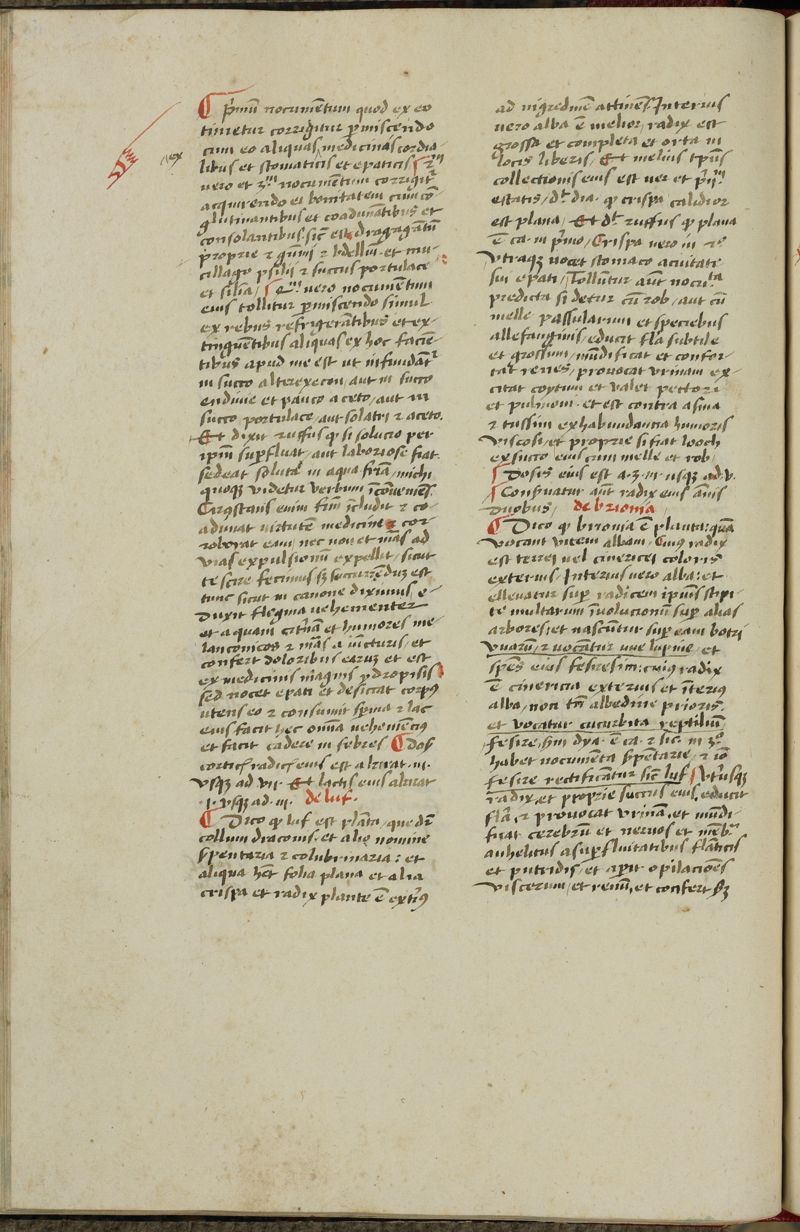 p̄mū nocumētum quod ex eo
timetur corrigitur p̱miscendo
cum eo aliquas medicinas cordia
libus et stomaticis et epaticis
vero et nocumentum corrigit᷑
acquirendo ei bonitatem cum cō
glutinantibus et coadunātibus et
consolantibus sic̄ est dragagantū
p̱prie ⁊ gūmi ⁊ bdelliū. et mu-
cillago psilij ⁊ succus portulace
et silia/ vero nocumentum
eius tollitur p̱miscendo simul
ex rebus refrigerātibus et ex-
tinguētibus aliquas ex hoc faciē-
tibus apud me est ut infundāt᷑
in succo alterexecon/ aut in succo
endiuie et pauco aceto/ aut in
succo portulace/ aut solatri ⁊ aceto.
Et dixit ruffus qꝫ si solucio per
ip̄m sup̱fluat/ aut laboriose fiat.
sedeat solut᷑ in aqua fr̄ia/ michi
quoqꝫ videtur verbum īcōueniēs.
Eius stans enim includit ⁊ co-
adunat virtutē medicine ⁊ cor-
roborat eam nec non et mās ad
vias expulsionum expellit/ sicut
te scire fecimus sꝫ succurrēduꝫ est
tunc sicut in canone diximus e-
Duxit flegma vehementer
et aquam citrīam et humores me-
lanconicos ⁊ mās a iūcturis/ et
confert doloribus earuꝫ et est
ex medicinis magnis ydropisis
sed nocet epati et desiccat corpꝰ
utens eo ⁊ consumit sp̱ma ⁊ lac
eius facit hec omnia vehemēciꝰ
et facit cadere in febres Dos̄
corticꝭ radicꝭ eius est a kirat .iii.
vsqꝫ ad vii. Et lactis eius a kirat
.i. vsqꝫ ad .iii. de luf.
Dico qꝫ luf est plāta que dr̄
collum draconis. et alio nomine
serpentaria ⁊ colubrinaria: et
aliqua h̄et folia plana et alia
crispa et radix plante ē extiꝰ
ad nigredinē attinēs. Interius
vero alba ē melior/ radix est
grossa et completa et orta in
locis liberis/ Et melius tp̄us
collectionis eius est ver et
estatis/ dꝭ dia. qꝫ crispa calidior
est plana/ Et dꝭ ruffus qꝫ plana
ē ca. in p̄mo/ Crispa vero in
vtraqꝫ nocet stomaco acuitate
sui epati/ Tollūtur aūt
predicta si detur cū rob/ aut cū
melle passularum et speciebus
allefangimis/ educit fla subtile
et grossum/ mūdificat et confor-
tat renes/ prouocat vrinam ex-
citat coytum et valet pectori
et pulmoni. et est contra asma
⁊ tussim ex habundancia humoris
viscosi/ et proprie si fiat looch
ex succo eius cum melle et rob/
Dosis eius est a .ʒ. iii usqꝫ ad .v.
Conseruatur aūt radix eius annis
duobus/ de brionia
Dico qꝫ brionia ē planta: quā
vocant vitem albam/ Cuiꝰ radix
est terrei vel cinericei coloris
exterius/ Interius vero alba: et
eleuatur sup̱ radicem ip̄ius stipi-
te multarum inuolucionū sup̱ alias
arbores: et nascūtur sup̱ eam botri
vuarū/ ⁊ vocātur uue lupine et
sp̄es eius fesiresim: cuiꝰ radix
ē cinericia exterius et īteriꝰ
alba/ non tm̄ albedine prioris
et vocatur cucurbita reptiliū
fesire/ sim dya. ē ca. ⁊ sic. in
habet nocumēta sp̱entarie/ ⁊ iō
fesire rectificātur sic̄ luf vtriusqꝫ
radix/ et proprie succus eius/ educit
fla/ ⁊ prouocat vrinā/ et mūdi-
ficat cerebrū et neruos et
anhelitus a sup̱fluitatibus flaticis
et putridis/ et ap̱it opilacioēs
viscerum/ et renū/ et confert